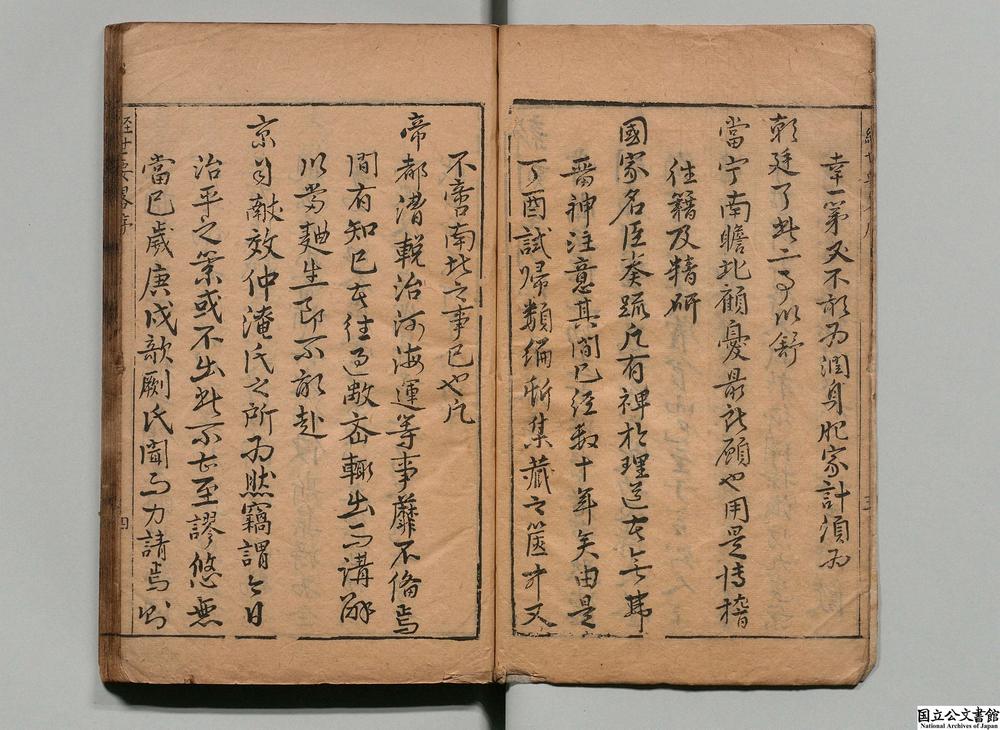 幸一第又不敢為潤身肥家計須為
朝廷了此二事以舒
當宁南瞻北顧憂最所願也用是博稽
往籍及精研
國家名臣奏疏凡有裨於理道者無弗
晉神注意其間已經数十年矣由是
丁酉試歸類編所集藏之篋中又
三
不啻南北之事已也凡
帝都漕輓治河海運等事靡不備焉
間有知已者往過敝齋輒出而講解
以當麯生即不敢赴
京自獻效仲淹氏之所為然竊謂今日
治平之策或不出此不亡至謬悠無
當已歲庚戌歌劂氏聞而力請焉則
經世要畧序
四
国立公文書館
National Archives of Japan